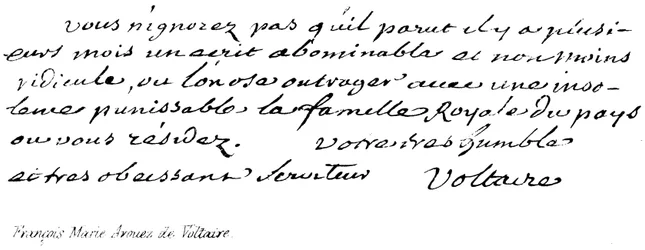 vous n'ignorez pas qu'il parut il y a plusi-
eurs mois un ecrit abominable et non moins
ridicule, ou l'on ose outrager avec une inso-
lence punissable la famille Royale du pays
ou vous résidez. votre tres humble
et tres obeissant serviteur Voltaire
François Marie Arouet de Voltaire.